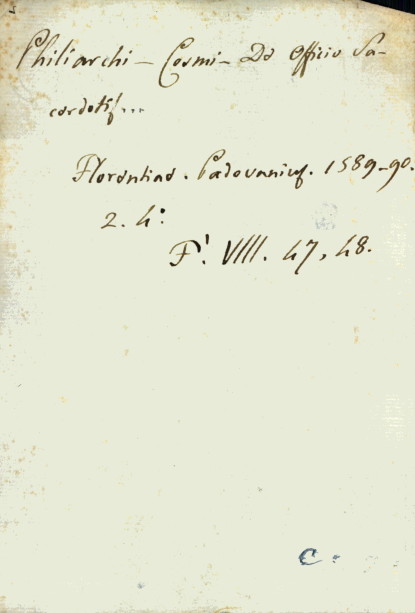 Philiarchi - Cosmi - De Officio Sa-
cerdotis...
Florentiae. Padovanius. 1589-90.
2. 4:
F'. VIIII. 47, 48.
C.